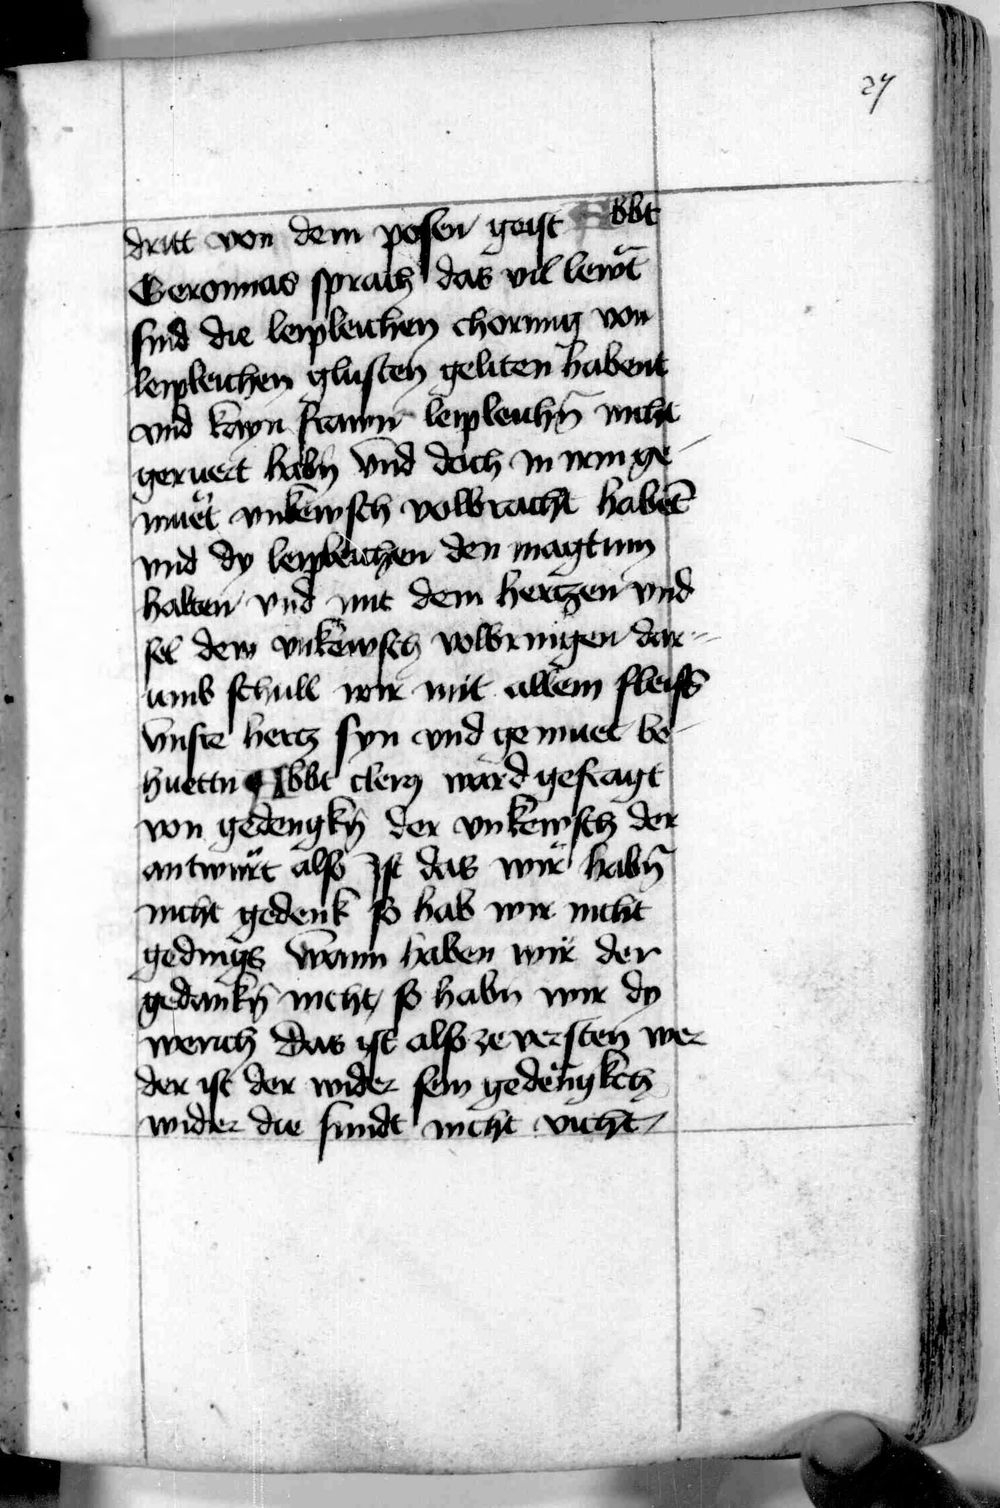 27
dritt von dem posen geist Abbt
Geronnas sprach das vil lewt̄
sind die leipleichen chorung von
leipleichen glusten geliten habent
vnd kayn frawn leipleichn̄ nicht
geruert habn̄ vnd doch in irm ge
muet vnkewsch volbracht habēt
vnd dy leipleichen den magtum
halten vnd mit dem hertzen vnd
sel dew vnkewsch volbringen dar-
umb schull wir mit allem fleiss
vnsre hertz syn vnd gemuet be-
huettn Abbt cherī ward gefragt
von gedengkn̄ der vnkewsch der
antwurt also Ist das wir habn̄
nicht gedenk so hab wir nicht
gedings Wann haben wir der
gedankn̄ nicht so habn wir dy
werich Das ist also ze versten wer
der ist der wider sein gedengkch
wider die sundt nicht vicht